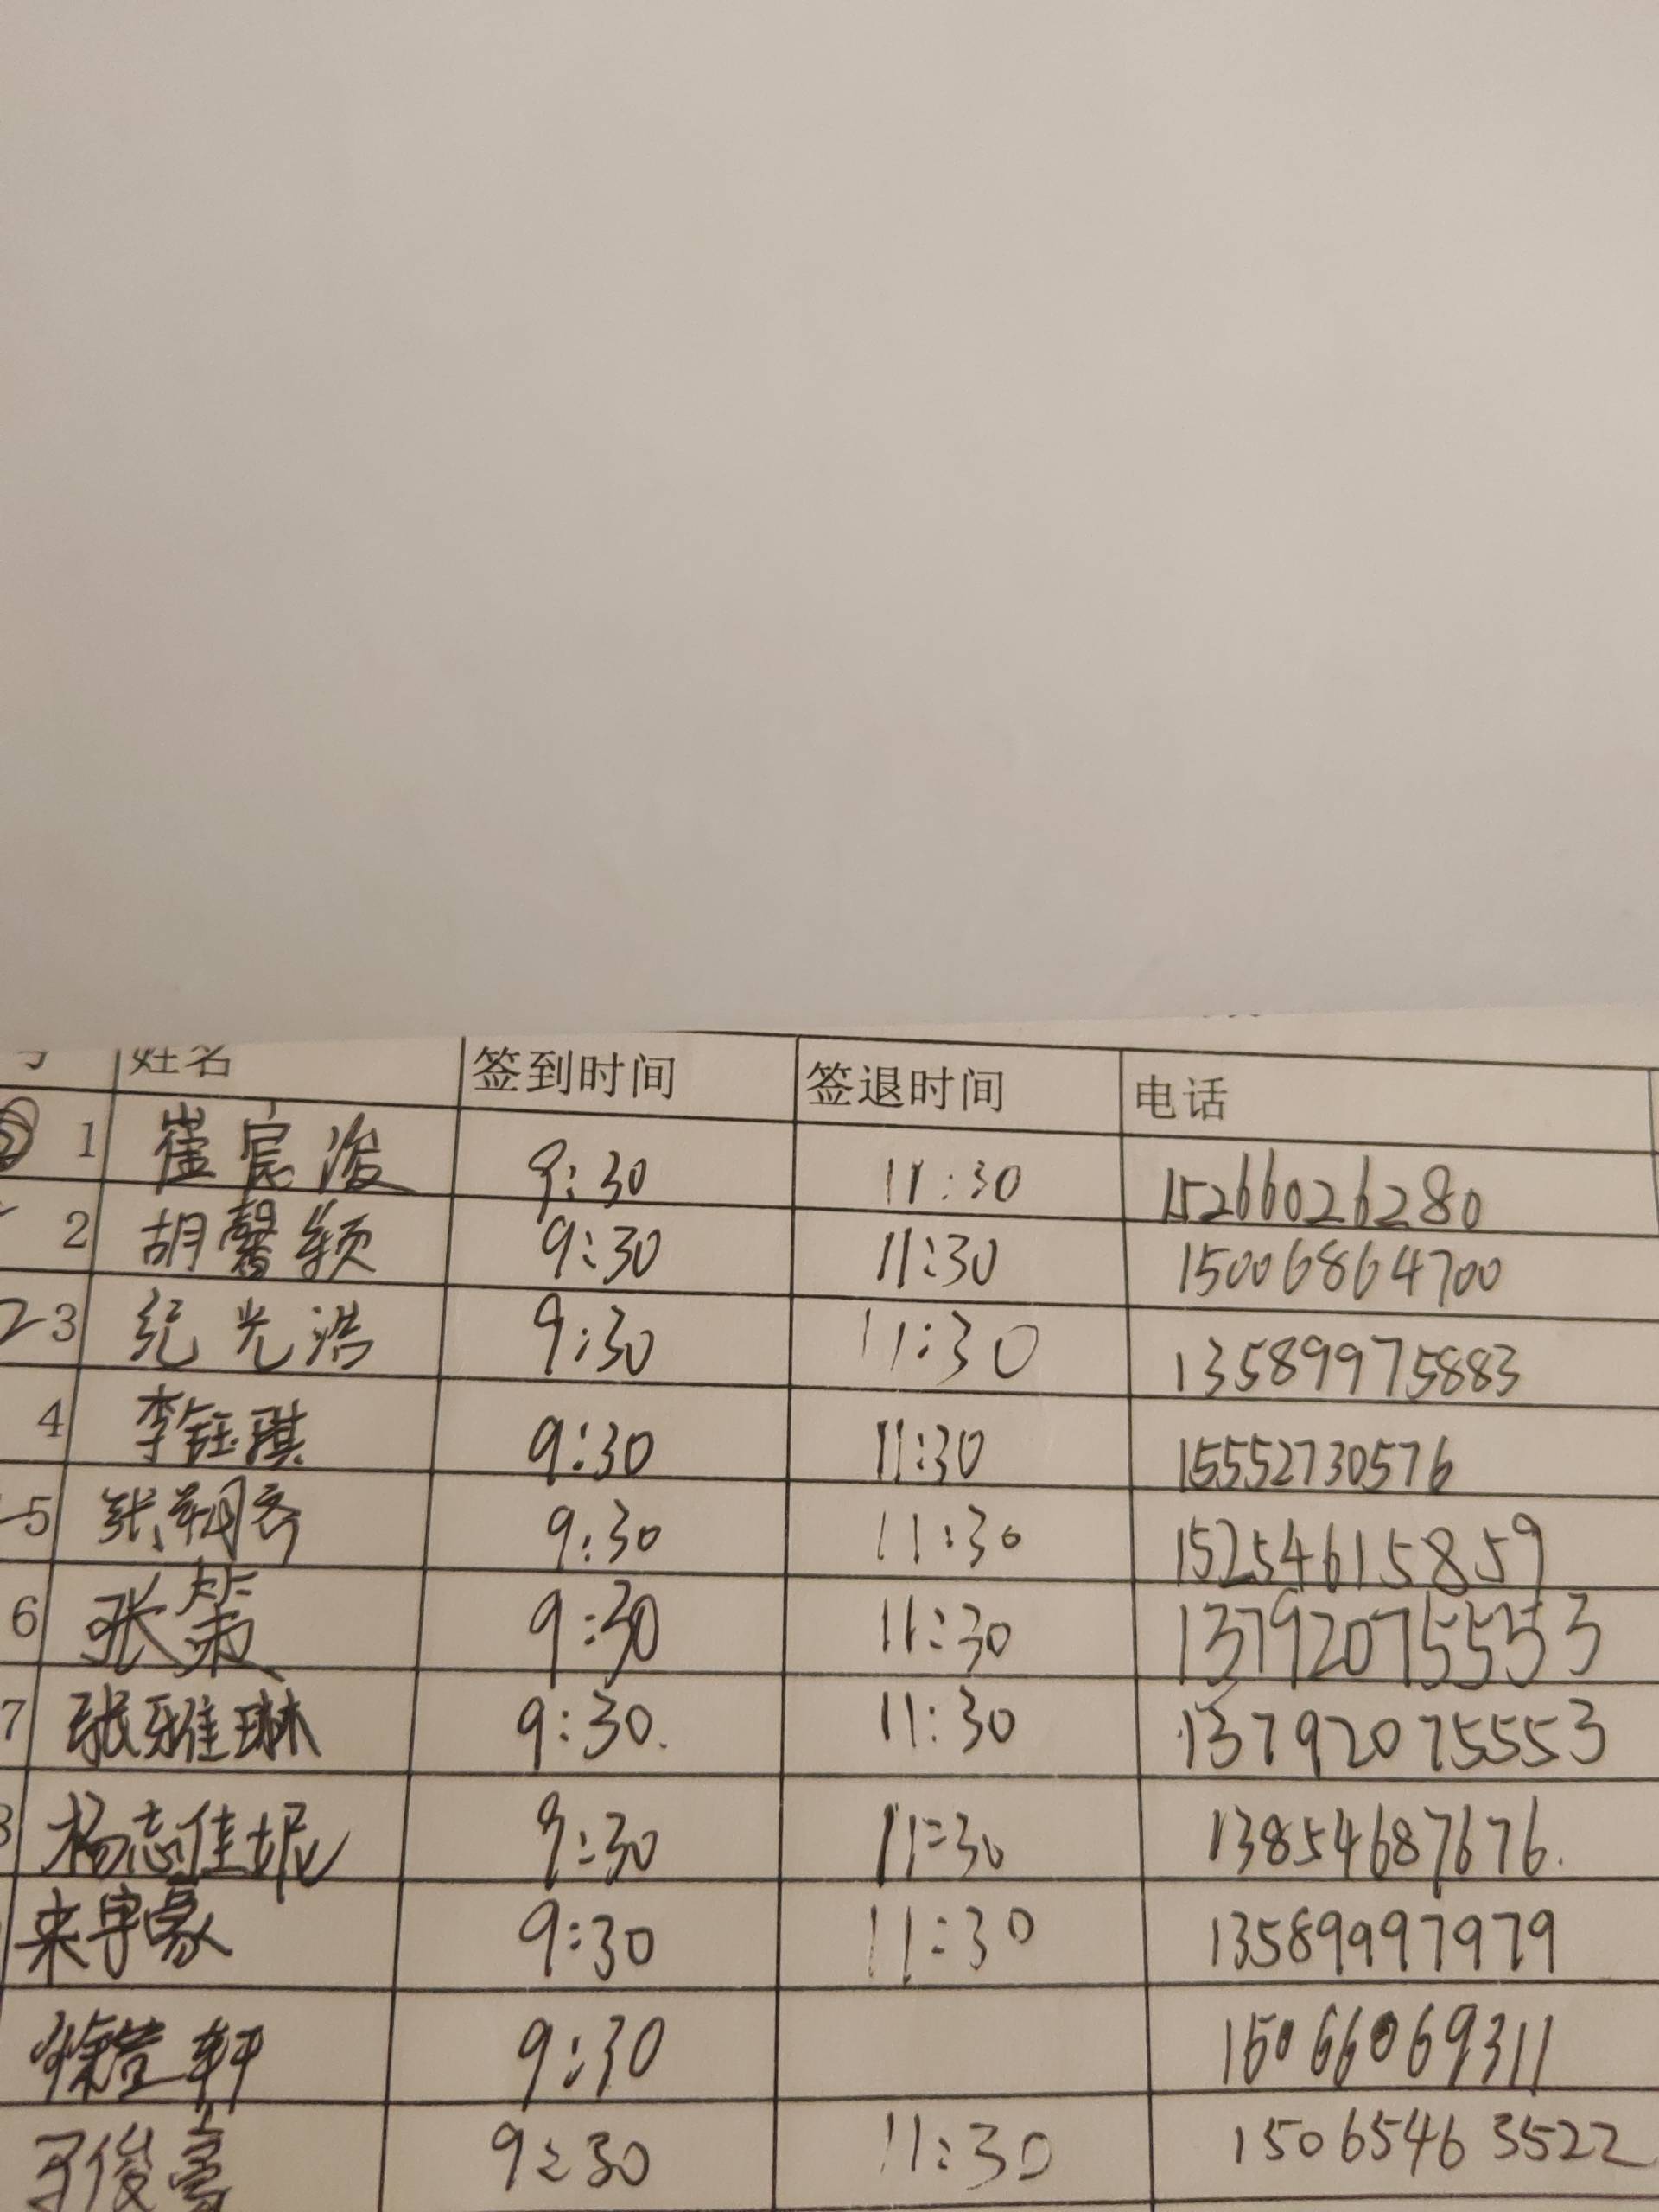 号 姓名 签到时间 签退时间 电话
1 崔宸浚 9:30 11:30 15266026280
2 胡馨颖 9:30 11:30 15006864700
3 纪光浩 9:30 11:30 13589975883
4 李钰琪 9:30 11:30 15552730576
5 张翔齐 9:30 11:30 15254615859
6 张策 9:30 11:30 13792075553
7 张雅琳 9:30. 11:30 13792075553
8 杨志佳妮 9:30 11:30 13854687676.
来宇豪 9:30 11:30 13589997979
徐萱轩 9:30 15066069311
俊豪 9:30 11:30 15065463522